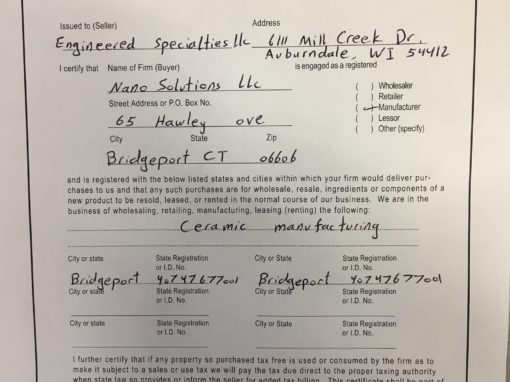 Issued to (Seller) Address
Engineered Specialties llc 6111 Mill Creek Dr.
Auburndale, WI 54412
I certify that Name of Firm (Buyer) is engaged as a registered
Nano Solutions llc
( ) Wholesaler
Street Address or P.O. Box No. ( ) Retailer
( ) Manufacturer
65 Hawley ave ( ) Lessor
City State Zip ( ) Other (specify)
Bridgeport CT 06606
and is registered with the below listed states and cities within which your firm would deliver pur-
chases to us and that any such purchases are for wholesale, resale, ingredients or components of a
new product to be resold, leased, or rented in the normal course of our business. We are in the
business of wholesaling, retailing, manufacturing, leasing (renting) the following:
Ceramic manufacturing
City or state State Registration City or state State Registration
or I.D. No. or I.D. No.
Bridgeport 40747677001 Bridgeport 40747677001
City or state State Registration City or State State Registration
or I.D. No. or I.D. No.
City or state State Registration City or state State Registration
or I.D. No. or I.D. No.
I further certify that if any property so purchased tax free is used or consumed by the firm as to
make it subject to a sales or use tax we will pay the tax due direct to the proper taxing authority
when state law so provides or inform the seller for added tax billing. This certificate shall be part of